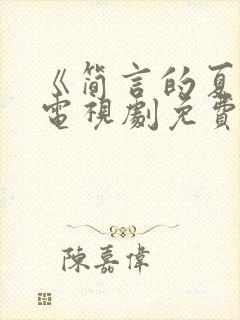 《简言的夏
電視劇免費
陳嘉偉